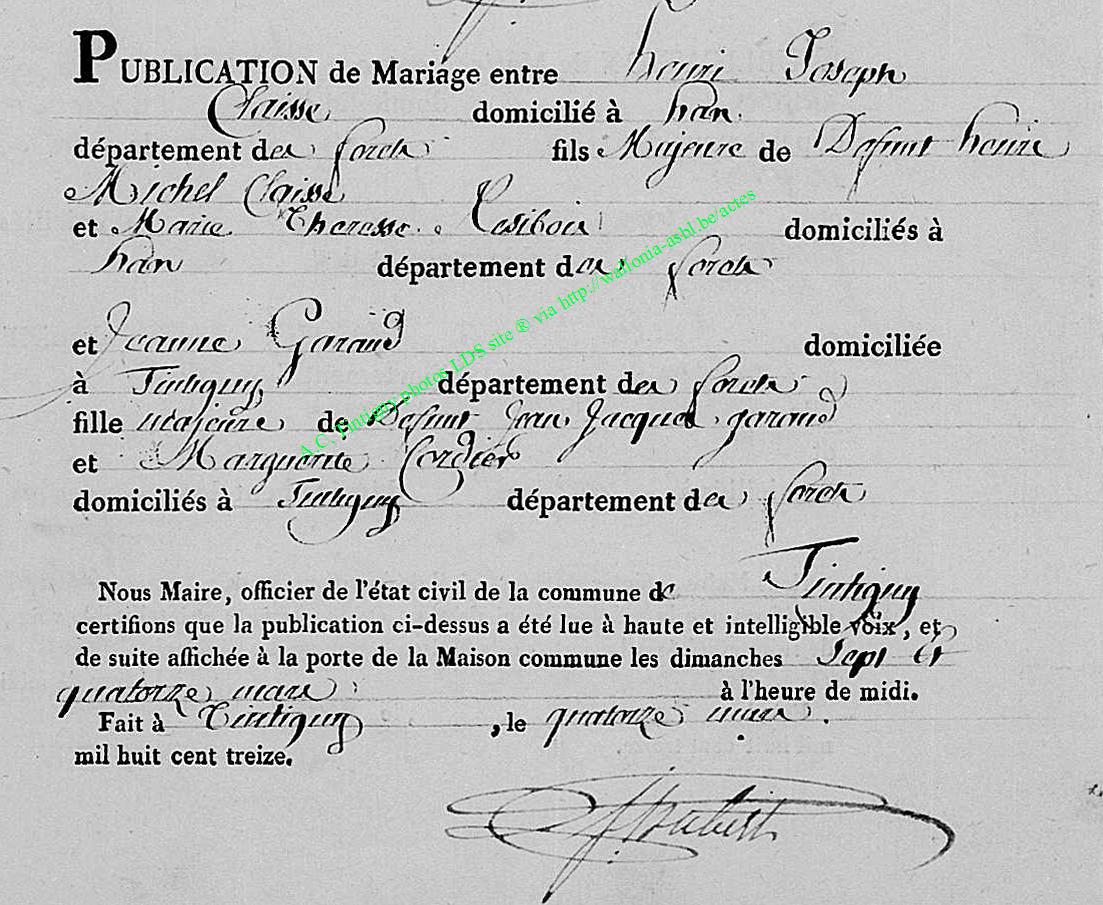 PUBLICATION de Mariage entre henri Joseph
Claisse domicilié à han
département des forets fils Majeure de Defunt henri
Michel Claisse
et Marie Theresse Lesiboir domiciliés à
han département des forets
et Jeanne Garand domiciliée
à Tintigny département des forets
fille majeure de Defunt Jean Jacques garand
et Marguerite Cordier
domiciliés à Tintigny département des forets
Nous Maire, officier de l'état civil de la commune de Tintigny
certifions que la publication ci-dessus a été lue à haute et intelligible voix, et
de suite affichée à la porte de la Maison commune les dimanches Sept et
quatorze mars à l'heure de midi.
Fait à Tintigny, le quatorze mars.
mil huit cent treize.
A.C. Tintigny photos LDS site ® via http://wallonia-asbl.be/actes